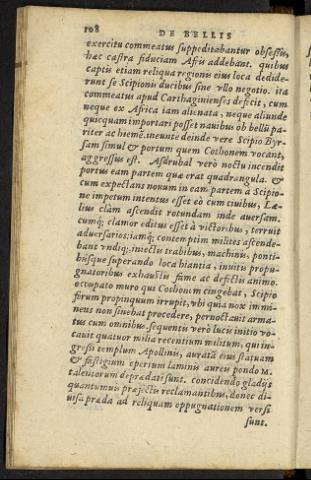 108 DE BELLIS
exercitu commeatus suppeditabantur obsessis,
hæc castra fiduciam Afris addebant. quibus
captis etiam reliqua regionis eius loca dedide-
runt se Scipionis ducibus sine vllo negotio. ita
commeatus apud Carthaginienses defecit, cum
neque ex Africa iam alienata, neque aliunde
quicquam importari posset nauibus ob bellũ pa-
riter ac hiemẽ. ineunte deinde vere Scipio Byr-
sam simul & portum quem Cothonem vocant,
aggressus est. Asdrubal verò noctu incendit
portus eam partem quæ erat quadrangula. &
cum expectans nouum in eam partem à Scipio-
ne impetum intentus esset eò cum ciuibus, Læ-
lius clàm ascendit rotundam inde auersam.
cumq́; clamor editus esset à victoribus, territ
aduersarios: iamq́; contemptim milites ascende-
bant vndiq́;, iniectis trabibus, machinis, ponti-
búsque superando loca hiantia, inuitis propu-
gnatoribus exhaustis fame ac defectis animo.
occupato muro qui Cothonem cingebat, Scipio
forum propinquum irrupit, vbi quia nox immi-
nens non sinebat procedere, pernoctauit arma-
tus cum omnibus. sequentis verò lucis initio vo-
cauit quatuor milia recentium militum, qui in-
gressi templum Apollinis, auratã eius statuam
& fastigium opertum laminis aureis pondo M.
talentorum deprædati sunt. concidendo gladijs
quantumuis præfectis reclamantibus, donec di-
uisa præda ad reliquam oppugnationem versi
sunt.